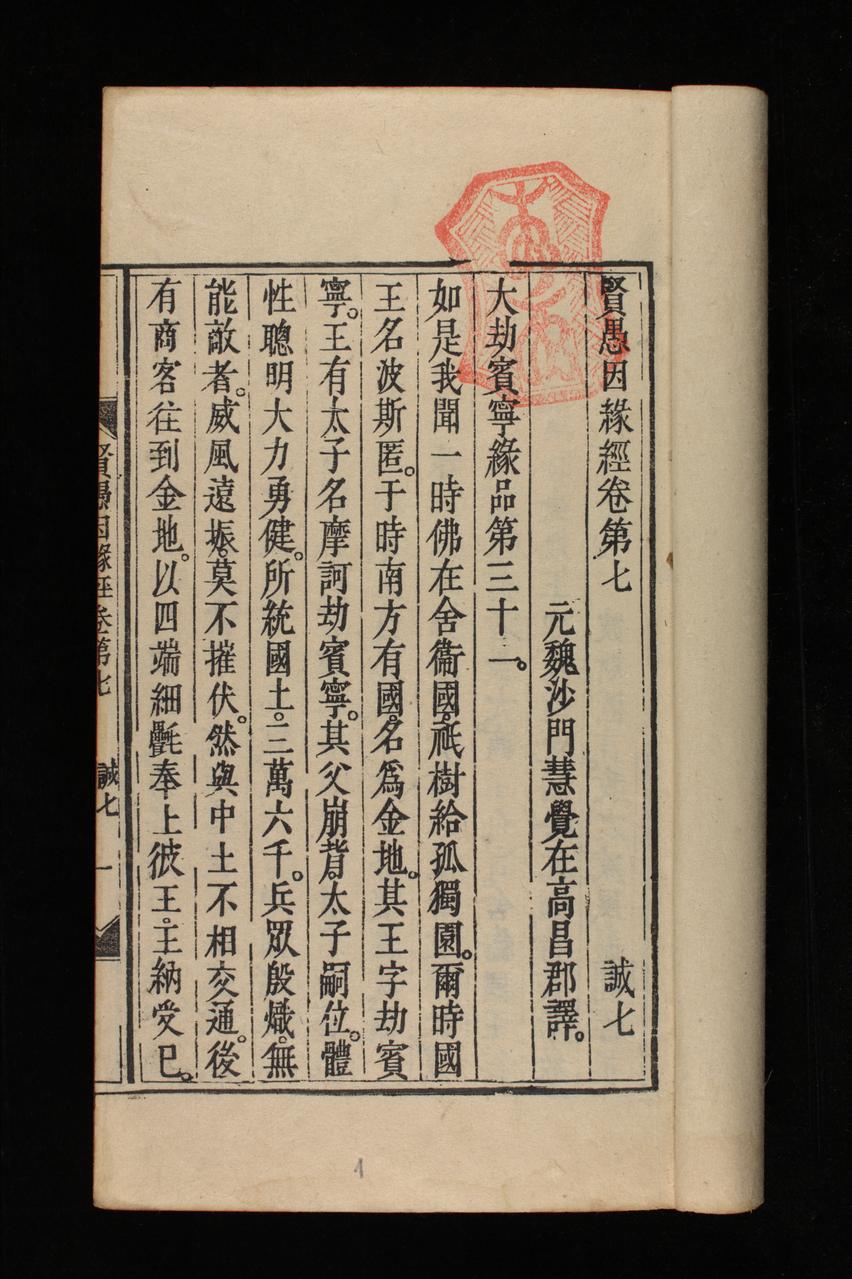 賢愚因緣經卷第七 誠七
元魏沙門慧覺在高昌郡譯。
大劫賓寧緣品第三十一。
如是我聞一時佛在舍衞國。祇樹給孤獨園。爾時國
王名波斯匿。于時南方有國。名爲金地。其王字劫賓
寧。王有太子名摩訶劫賓寧。其父崩背。太子嗣位。體
性聰明大力勇健。所統國土。三萬六千。兵眾殷熾。無
能敵者。威風遠振。莫不摧伏。然與中土不相交通。後
有商客往到金地。以四端細氎奉上彼王。王納受已。
賢愚因緣經卷第七 誠七 一
1